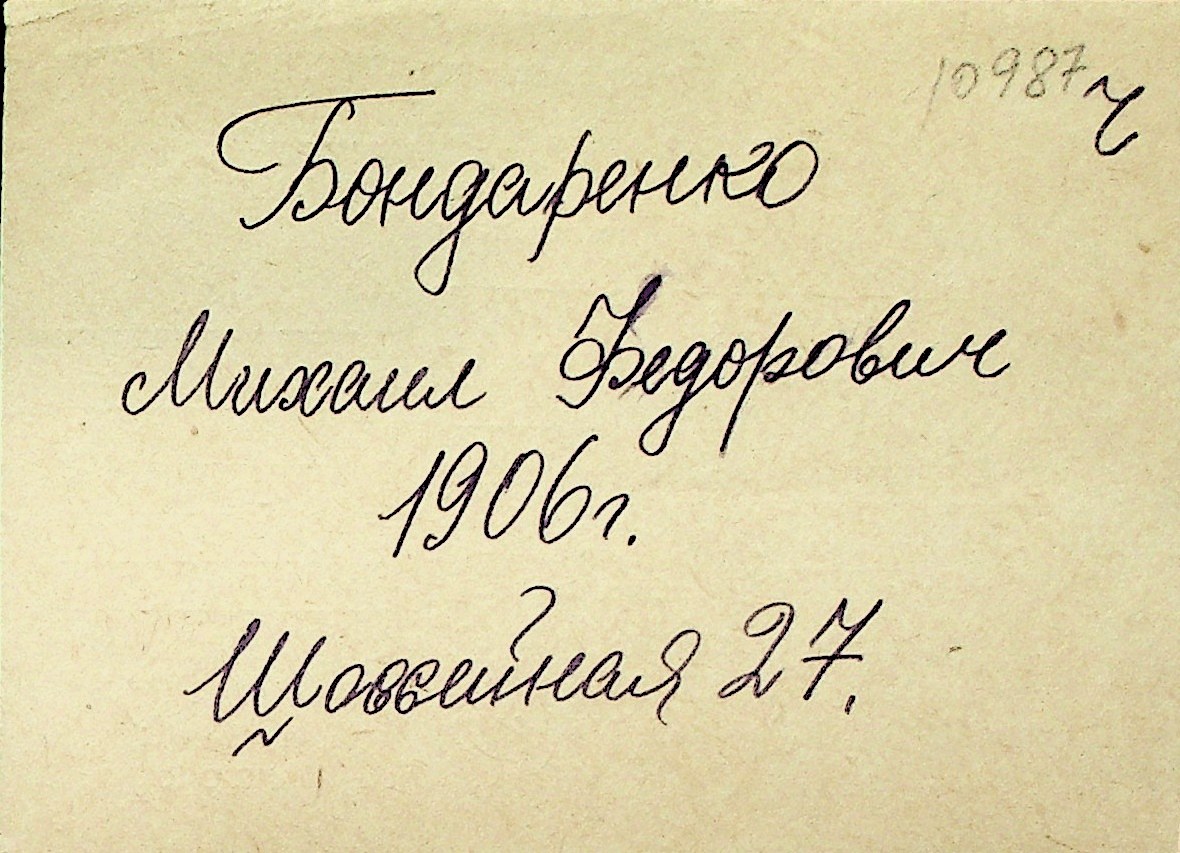 10987 ч
Бондаренко
Михаил Федорович
1906г.
Шоссейная 27.